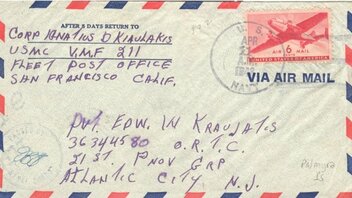 AFTER 5 DAYS RETURN TO
CORP IGNATIUS D KIAULAKIS
USMC VMF 211
FLEET POST OFFICE
SAN FRANCISCO CALIF.
U.S.
APR
NAVY
AIR 6¢ MAIL
UNITED STATES OF AMERICA
VIA AIR MAIL
Pvt. EDW. W KRAUJATIS
36344580 O.R.T.C.
21 ST. PROV GRP
ATLANTIC CITY N.J.
Palmyra
IS